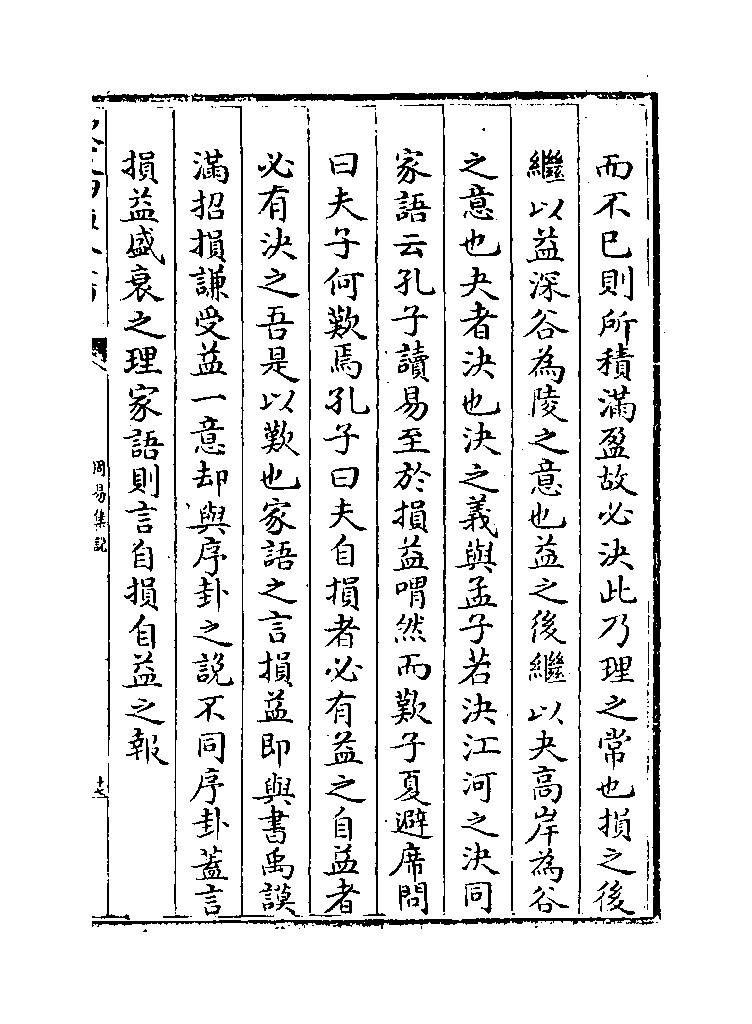 而不已則所積滿盈故必決此乃理之常也損之後
繼以益深谷為陵之意也益之後繼以夬高岸為谷
之意也夬者決也決之義與孟子若決江河之決同
家語云孔子讀易至於損益喟然而歎子夏避席問
曰夫子何歎焉孔子曰夫自損者必有益之自益者
必有決之吾是以歎也家語之言損益即與書禹謨
滿招損謙受益一意却與序卦之說不同序卦蓋言
損益盛衰之理家語則言自損自益之報
周易集說
十七